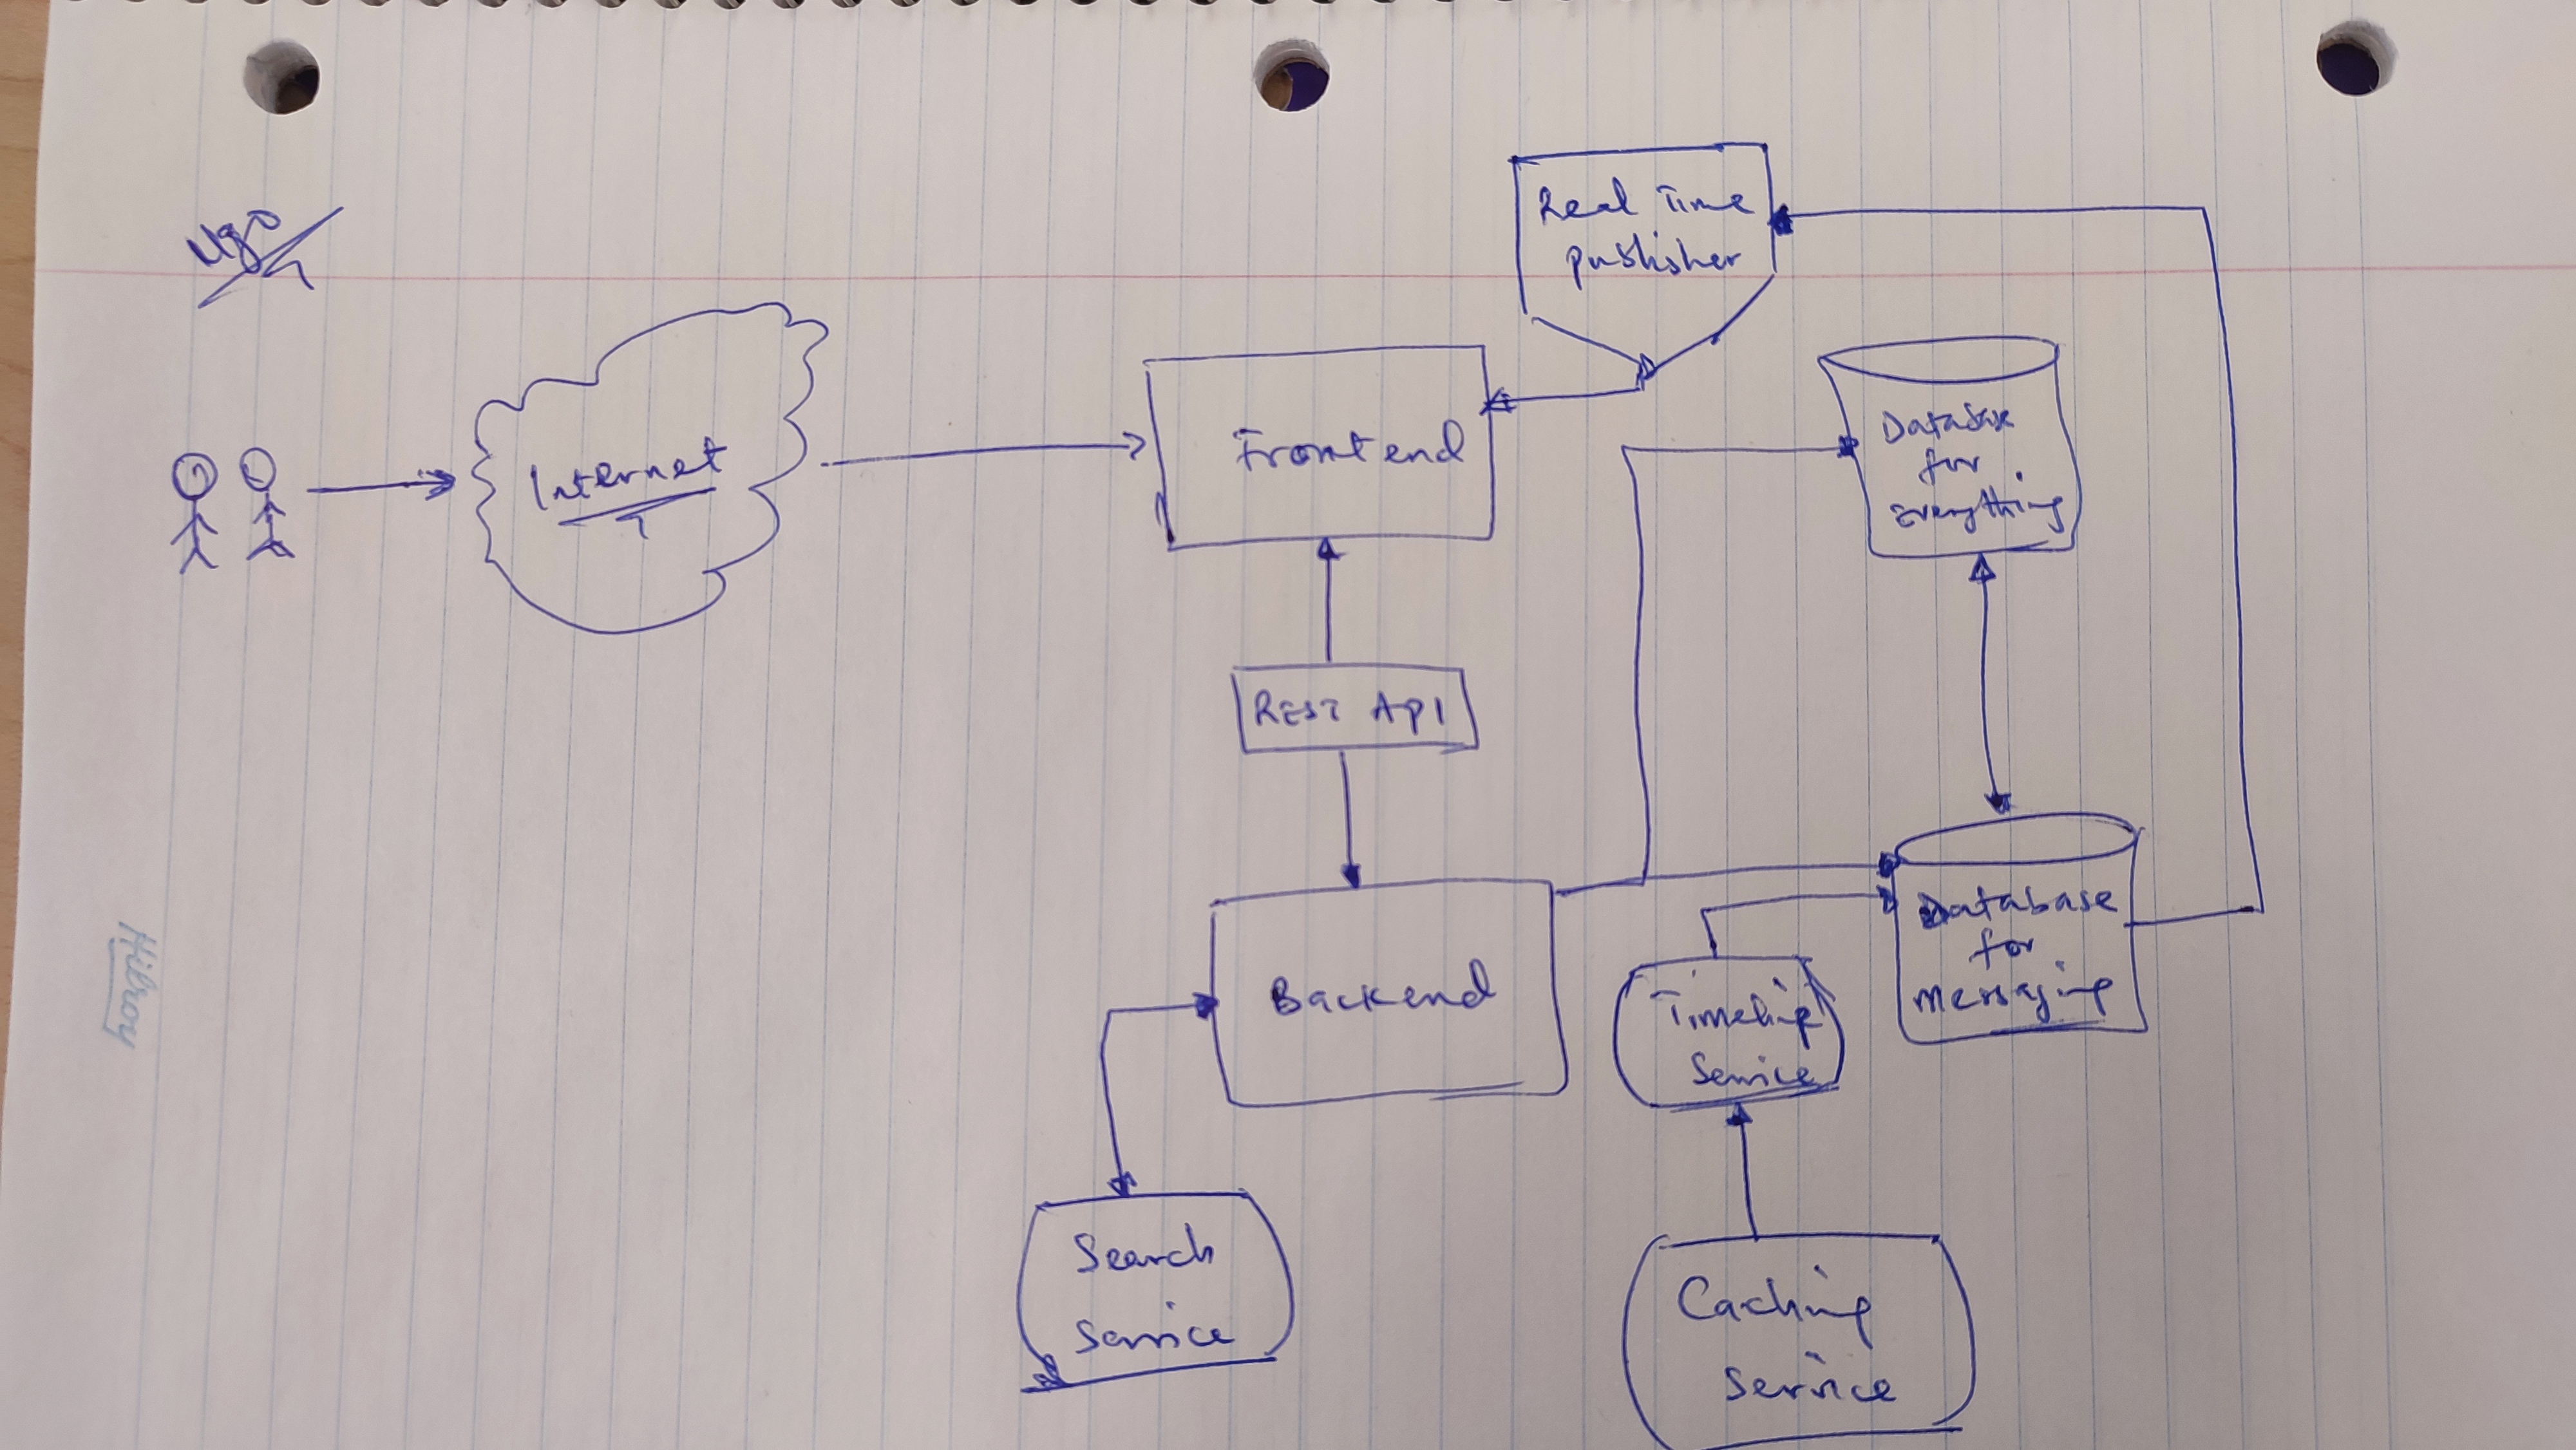 Ugo
Real Time
publisher
Internet
Frontend
Database
for
Everything
REST API
Backend
Database
for
messaging
Timeline
Service
Search
Service
Caching
Service
Hilroy